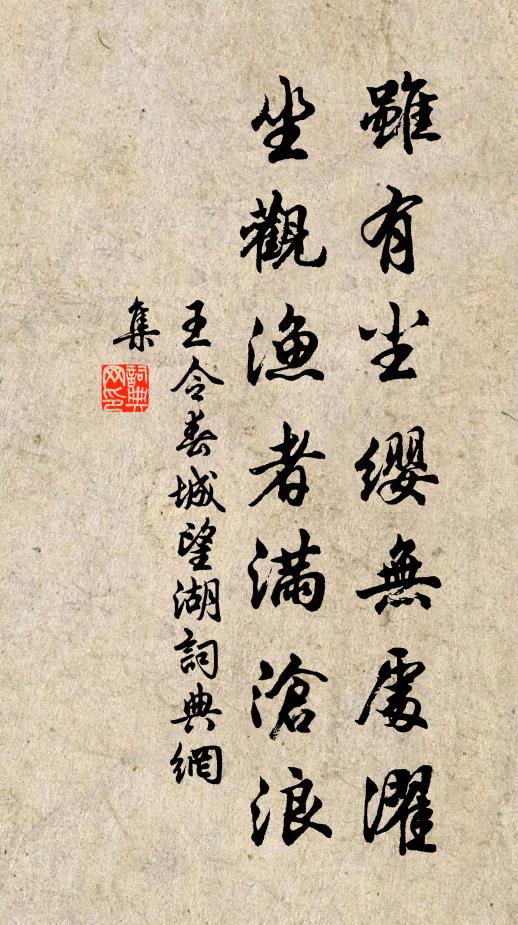 雖有尘纓無處濯
坐觀漁者滿滄浪
王令春城望湖詞典網
集
詞典
网印